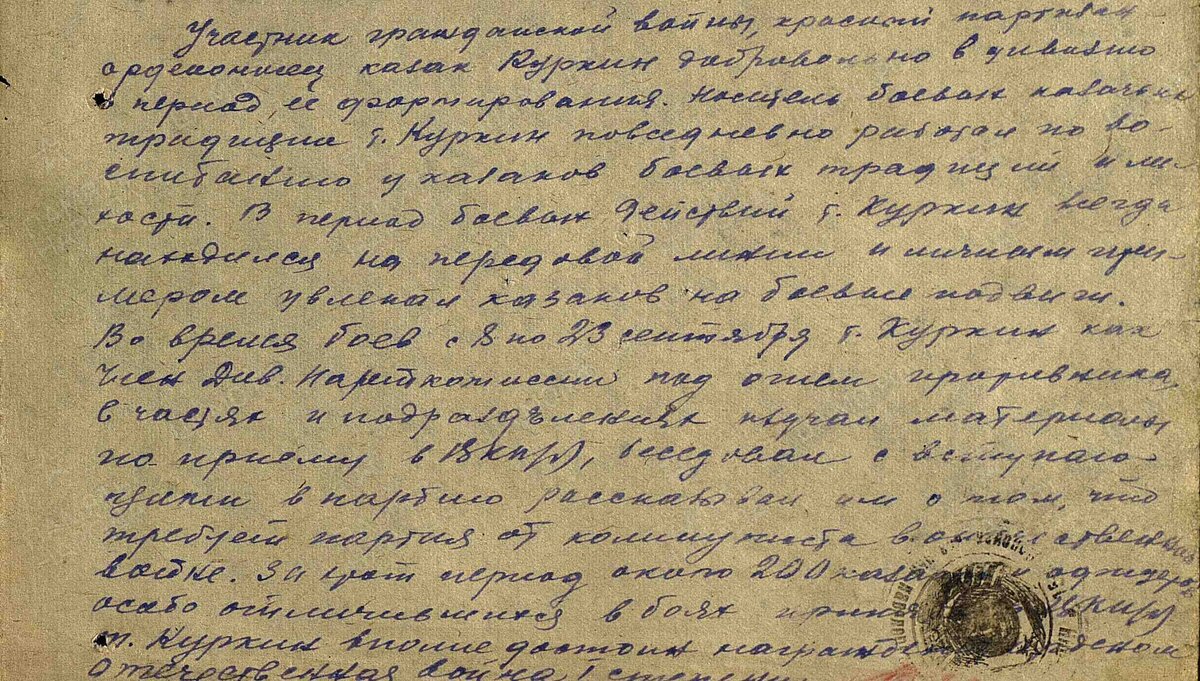 Участник гражданской войны, красный партизан
орденоносец казак Куркин добровольно в дивизию
в период её формирования. Носитель боевых казачьих
традиций т. Куркин повседневно работал по во-
спитанию у казаков боевых традиций и
В период боевых действий т. Куркин всегда
находился на передовой линии и личным при-
мером увлекал казаков на боевые подвиги.
Во время боев с 8 по 23 сентября т. Куркин как
член Див. Партком
иссии под огнем противника,
в частях и подразделениях изучал материалы
по приёму в ВКП(б), беседовал с вступаю-
щими в партию рассказывал им о том, что
требует партия от коммуниста в отечественной
войне. За этот период около 200 каза
особо отличившихся в боях ВКП(б)
т. Куркин вполне достоин
Отечественная война 1 степени.